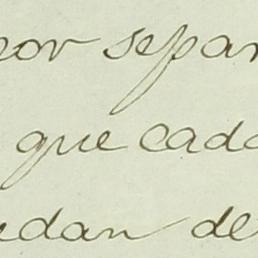 por separ
que cada
edan de